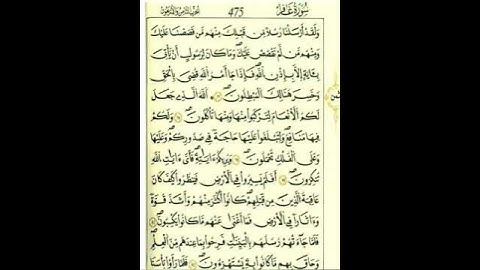 سُورَةُ غَافِر 475
وَلَقَدْ أَرْسَلْنَا رُسُلًا مِّن قَبْلِكَ مِنْهُم مَّن قَصَصْنَا عَلَيْكَ
وَمِنْهُم مَّن لَّمْ نَقْصُصْ عَلَيْكَ وَمَا كَانَ لِرَسُولٍ أَن يَأْتِيَ
بِـَٔايَةٍ إِلَّا بِإِذْنِ ٱللَّهِ فَإِذَا جَآءَ أَمْرُ ٱللَّهِ قُضِيَ بِٱلْحَقِّ
وَخَسِرَ هُنَالِكَ ٱلْمُبْطِلُونَ ٱللَّهُ ٱلَّذِي جَعَلَ
لَكُمُ ٱلْأَنْعَٰمَ لِتَرْكَبُوا۟ مِنْهَا وَمِنْهَا تَأْكُلُونَ وَلَكُمْ
فِيهَا مَنَٰفِعُ وَلِتَبْلُغُوا۟ عَلَيْهَا حَاجَةً فِي صُدُورِكُمْ وَعَلَيْهَا
وَعَلَى ٱلْفُلْكِ تُحْمَلُونَ وَيُرِيكُمْ ءَايَٰتِهِۦ فَأَيَّ ءَايَٰتِ ٱللَّهِ
تُنكِرُونَ أَفَلَمْ يَسِيرُوا۟ فِي ٱلْأَرْضِ فَيَنظُرُوا۟ كَيْفَ كَانَ
عَٰقِبَةُ ٱلَّذِينَ مِن قَبْلِهِمْ كَانُوٓا۟ أَكْثَرَ مِنْهُمْ وَأَشَدَّ قُوَّةً
وَءَاثَارًا فِي ٱلْأَرْضِ فَمَآ أَغْنَىٰ عَنْهُم مَّا كَانُوا۟ يَكْسِبُونَ
فَلَمَّا جَآءَتْهُمْ رُسُلُهُم بِٱلْبَيِّنَٰتِ فَرِحُوا۟ بِمَا عِندَهُم مِّنَ ٱلْعِلْمِ
وَحَاقَ بِهِم مَّا كَانُوا۟ بِهِۦ يَسْتَهْزِءُونَ فَلَمَّا رَأَوْا۟ بَأْسَنَا